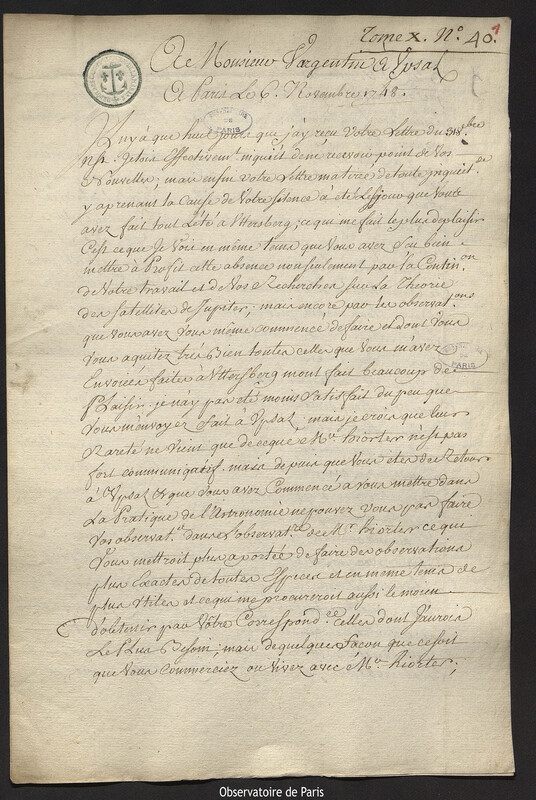 Tome X. N.º 40.
A Monsieur Vargentin a Upsal
A Paris Le 6. Novembre 1748.
Il n'y a que huit jours que j'ay reçu Votre Lettre du
n. st. J'etois Effectivem.t inquiet de ne recevoir point de Vos
Nouvelles; mais enfin Votre Lettre m'a tiré de toute inquiet.de
y aprenant la Cause de Votre silence a été Le sejour que Vous
avez fait tout L'été a Uttersberg; ce qui me fait le plus de plaisir
C'est ce que Je Voie en même tems que Vous avez Sçu bien
mettre à Profit cette absence non seulement par la Contin.on
de Votre travail et de Nos Recherches sur La Theorie
des Satellites de Jupiter; mais encore par les observat.ons
que Vous avez Vous même commencé de faire et dont Vous
Vous aquitez très Bien toutes celles que Vous m'avez
Envoyées faites à Uttersberg m'ont fait beaucoup de
Plaisir. je n'ay pas eté moins Satisfait du peu que
Vous m'envoyez fait à Upsal; mais je crois que leur
Rareté ne Vient que de ce que M.r hiorter n'est pas
fort communicatif. mais depuis que Vous etes de Retour
à Upsal & que Vous avez Commencé a Vous mettre dans
La Pratique de l'Astronomie ne pouvez Vous pas faire
Vos observat.s dans L'observat.re de M.r hiorter ce qui
Vous mettroit plus a portée de faire des observations
plus Exactes de toutes Espices et en même tems de
plus Utiles et ce qui me procureroit aussi le moien
d'obtenir par Vôtre Correspond.ce Celles dont J'aurois
Le Plus Besoin; mais de quelques Facon que ce soit
que Vous Commerciez ou Vivez avec M.r hiorter;
PARIS
PARIS
Observatoire de Paris